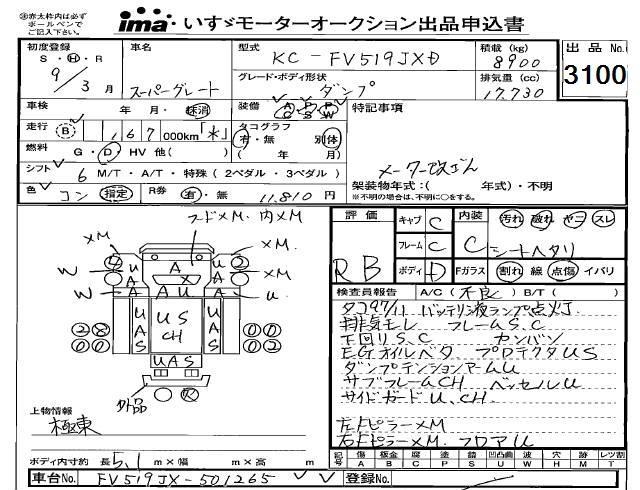 ※赤太枠内は必ず
ボールペンで
ご記入下さい。
ima いすゞモーターオークション出品申込書
初度登録 車名 型式 KC-FV519JXD 積載(kg) 8900
S・H・R 9/3月 スーパーグレート グレード・ボディ形状 ダンプ 排気量(cc) 17,730
出品No. 3100
車検 年 月・抹消 装備 A/C P/S P/W 特記事項
走行 B 1,167,000km「*」 タコグラフ 有・無 別体
燃料 G・D・HV 他( ) ( 年 月)
シフト 6 M/T・A/T・特殊(2ペダル・3ペダル) メーター改ざん
色 コン 指定 R券 有・無 11,810円 架装物年式:( 年式)・不明
※不明の場合は、不明に○をする。
評価 RB
キャブ C 内装 C 汚れ 破れ ヤニ スレ
フレーム C シートヘタリ
ボディ D Fガラス 割れ 線 点傷 イバリ
フードXM. 内XM
XM XM.
4 U A A U 2 XM
W A X A
W A A U A U
U U S U
28 A CH A 00
00 S S 02
UAS
外品
検査員報告 A/C(不良) B/T( )
タコ97/11 バッテリ液ランプ点灯.
排気モレ フレームS.C
下回りS.C カンバン
EGオイルベタ プロテクタUS
ダンプテンションアームU
サブフレームCH ベッセルU
サイドガードU、CH
左FピラーXM
右FピラーXM. フロアU
上物情報
極東
ボディ内寸約 長 5,1 m×幅 m×高 m
記号 傷 A 板金 K 腐 C 塗 P 錆 S 凹凸曲 U 波 W 穴 H 跡 M レツ割 T
車台No. FV519JX-501265 登録No.